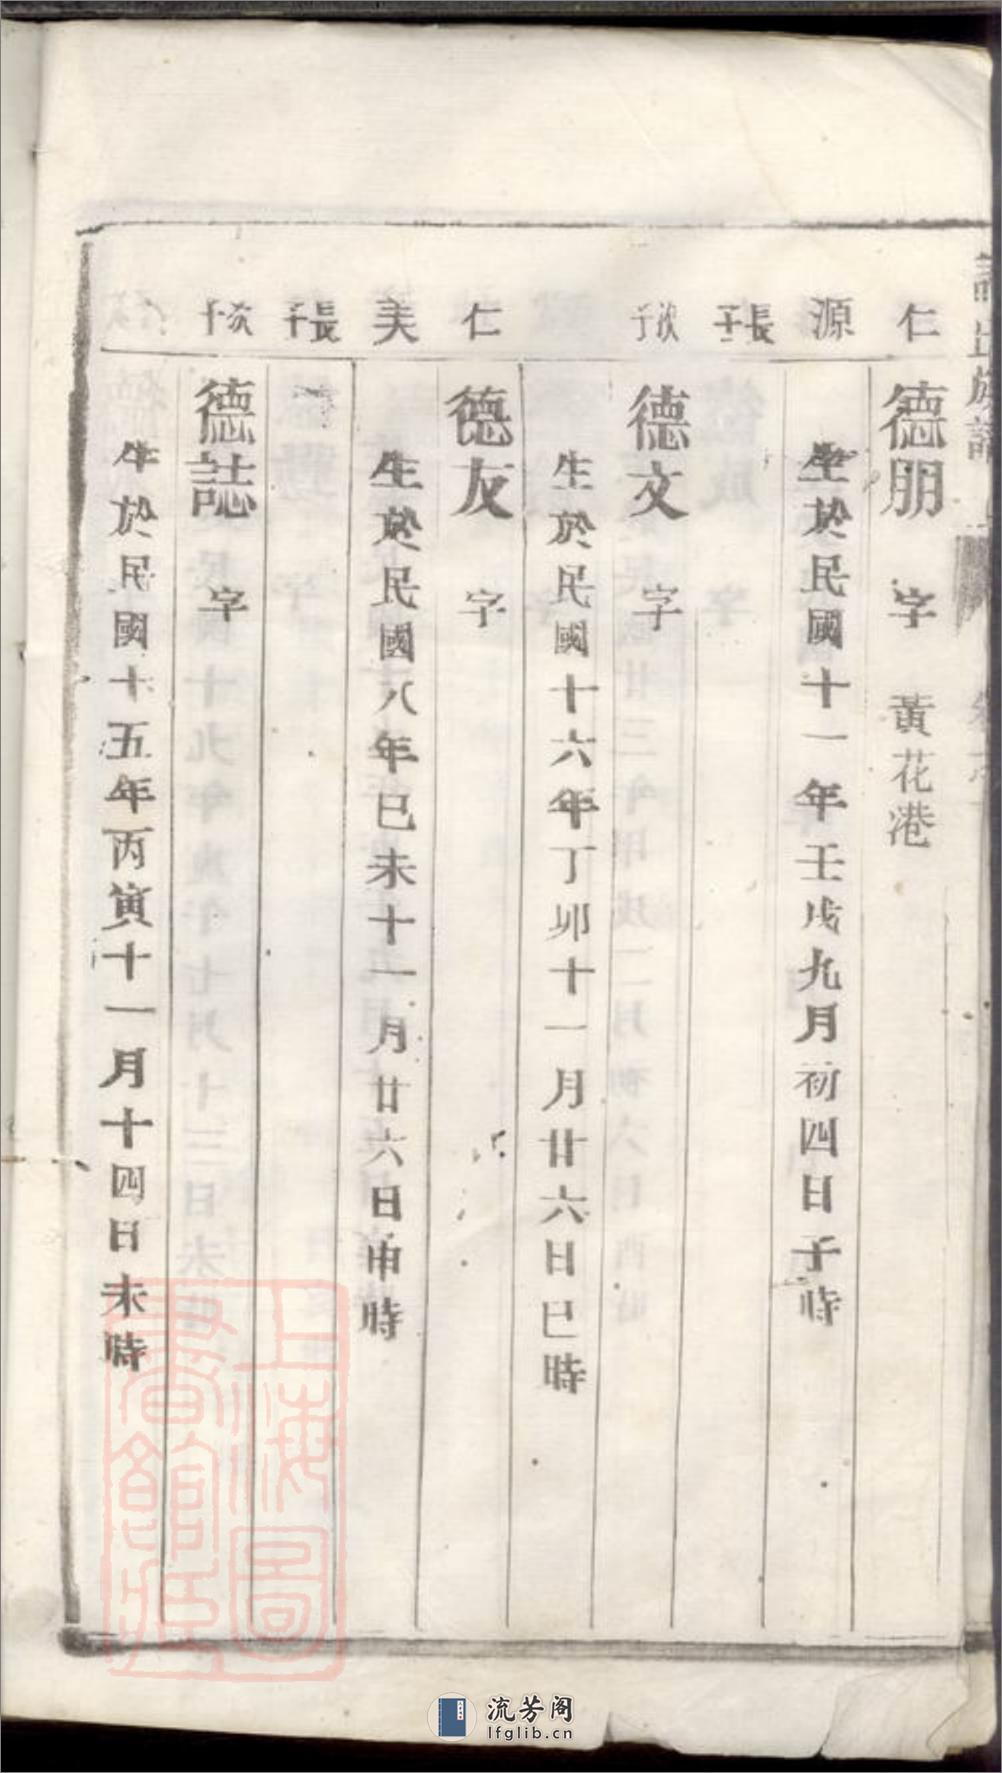 仁
德朋 字 黃花港
源
生於民國十一年壬戌九月初四日子時
長子
次子
德文 字
生於民國十六年丁卯十一月廿六日巳時
仁
德友 字
美
生於民國八年己未十一月廿六日申時
長子
次子
德誌 字
生於民國十五年丙寅十一月十四日未時
上海圖書館藏
流芳阁
lfglib.cn